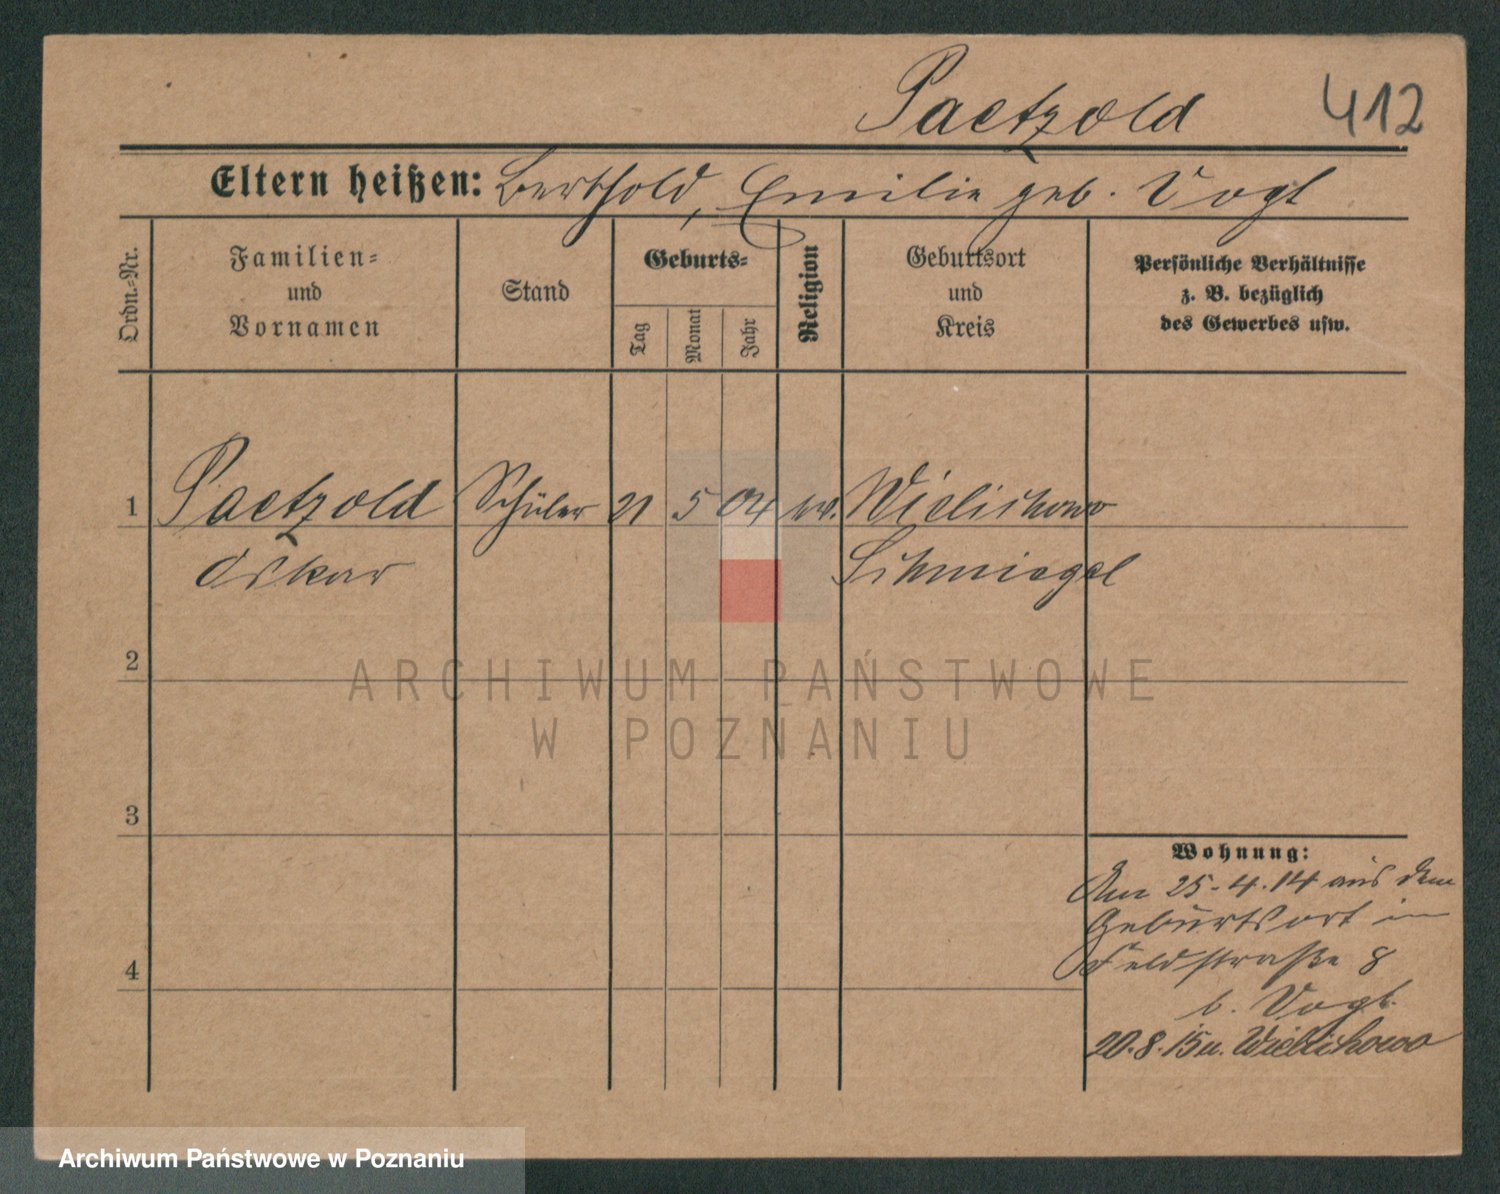 Paetzold 412
Eltern heißen: Berthold, Emilie geb. Vogt
Ordn.-Nr.
Familien-
und
Vornamen
Stand
Geburts-
Tag
Monat
Jahr
Religion
Geburtsort
und
Kreis
Persönliche Verhältnisse
z. B. bezüglich
des Gewerbes usw.
1 Paetzold Schüler 21 5 04 ev. Wielichowo
Oskar Schmiegel
2
3
4
Wohnung:
Am 25-4.14 aus dem
Geburtsort in
Feldstraße 8
b. Vogt.
20.8.15 n. Wielichowo
ARCHIWUM PAŃSTWOWE
W POZNANIU
Archiwum Państwowe w Poznaniu